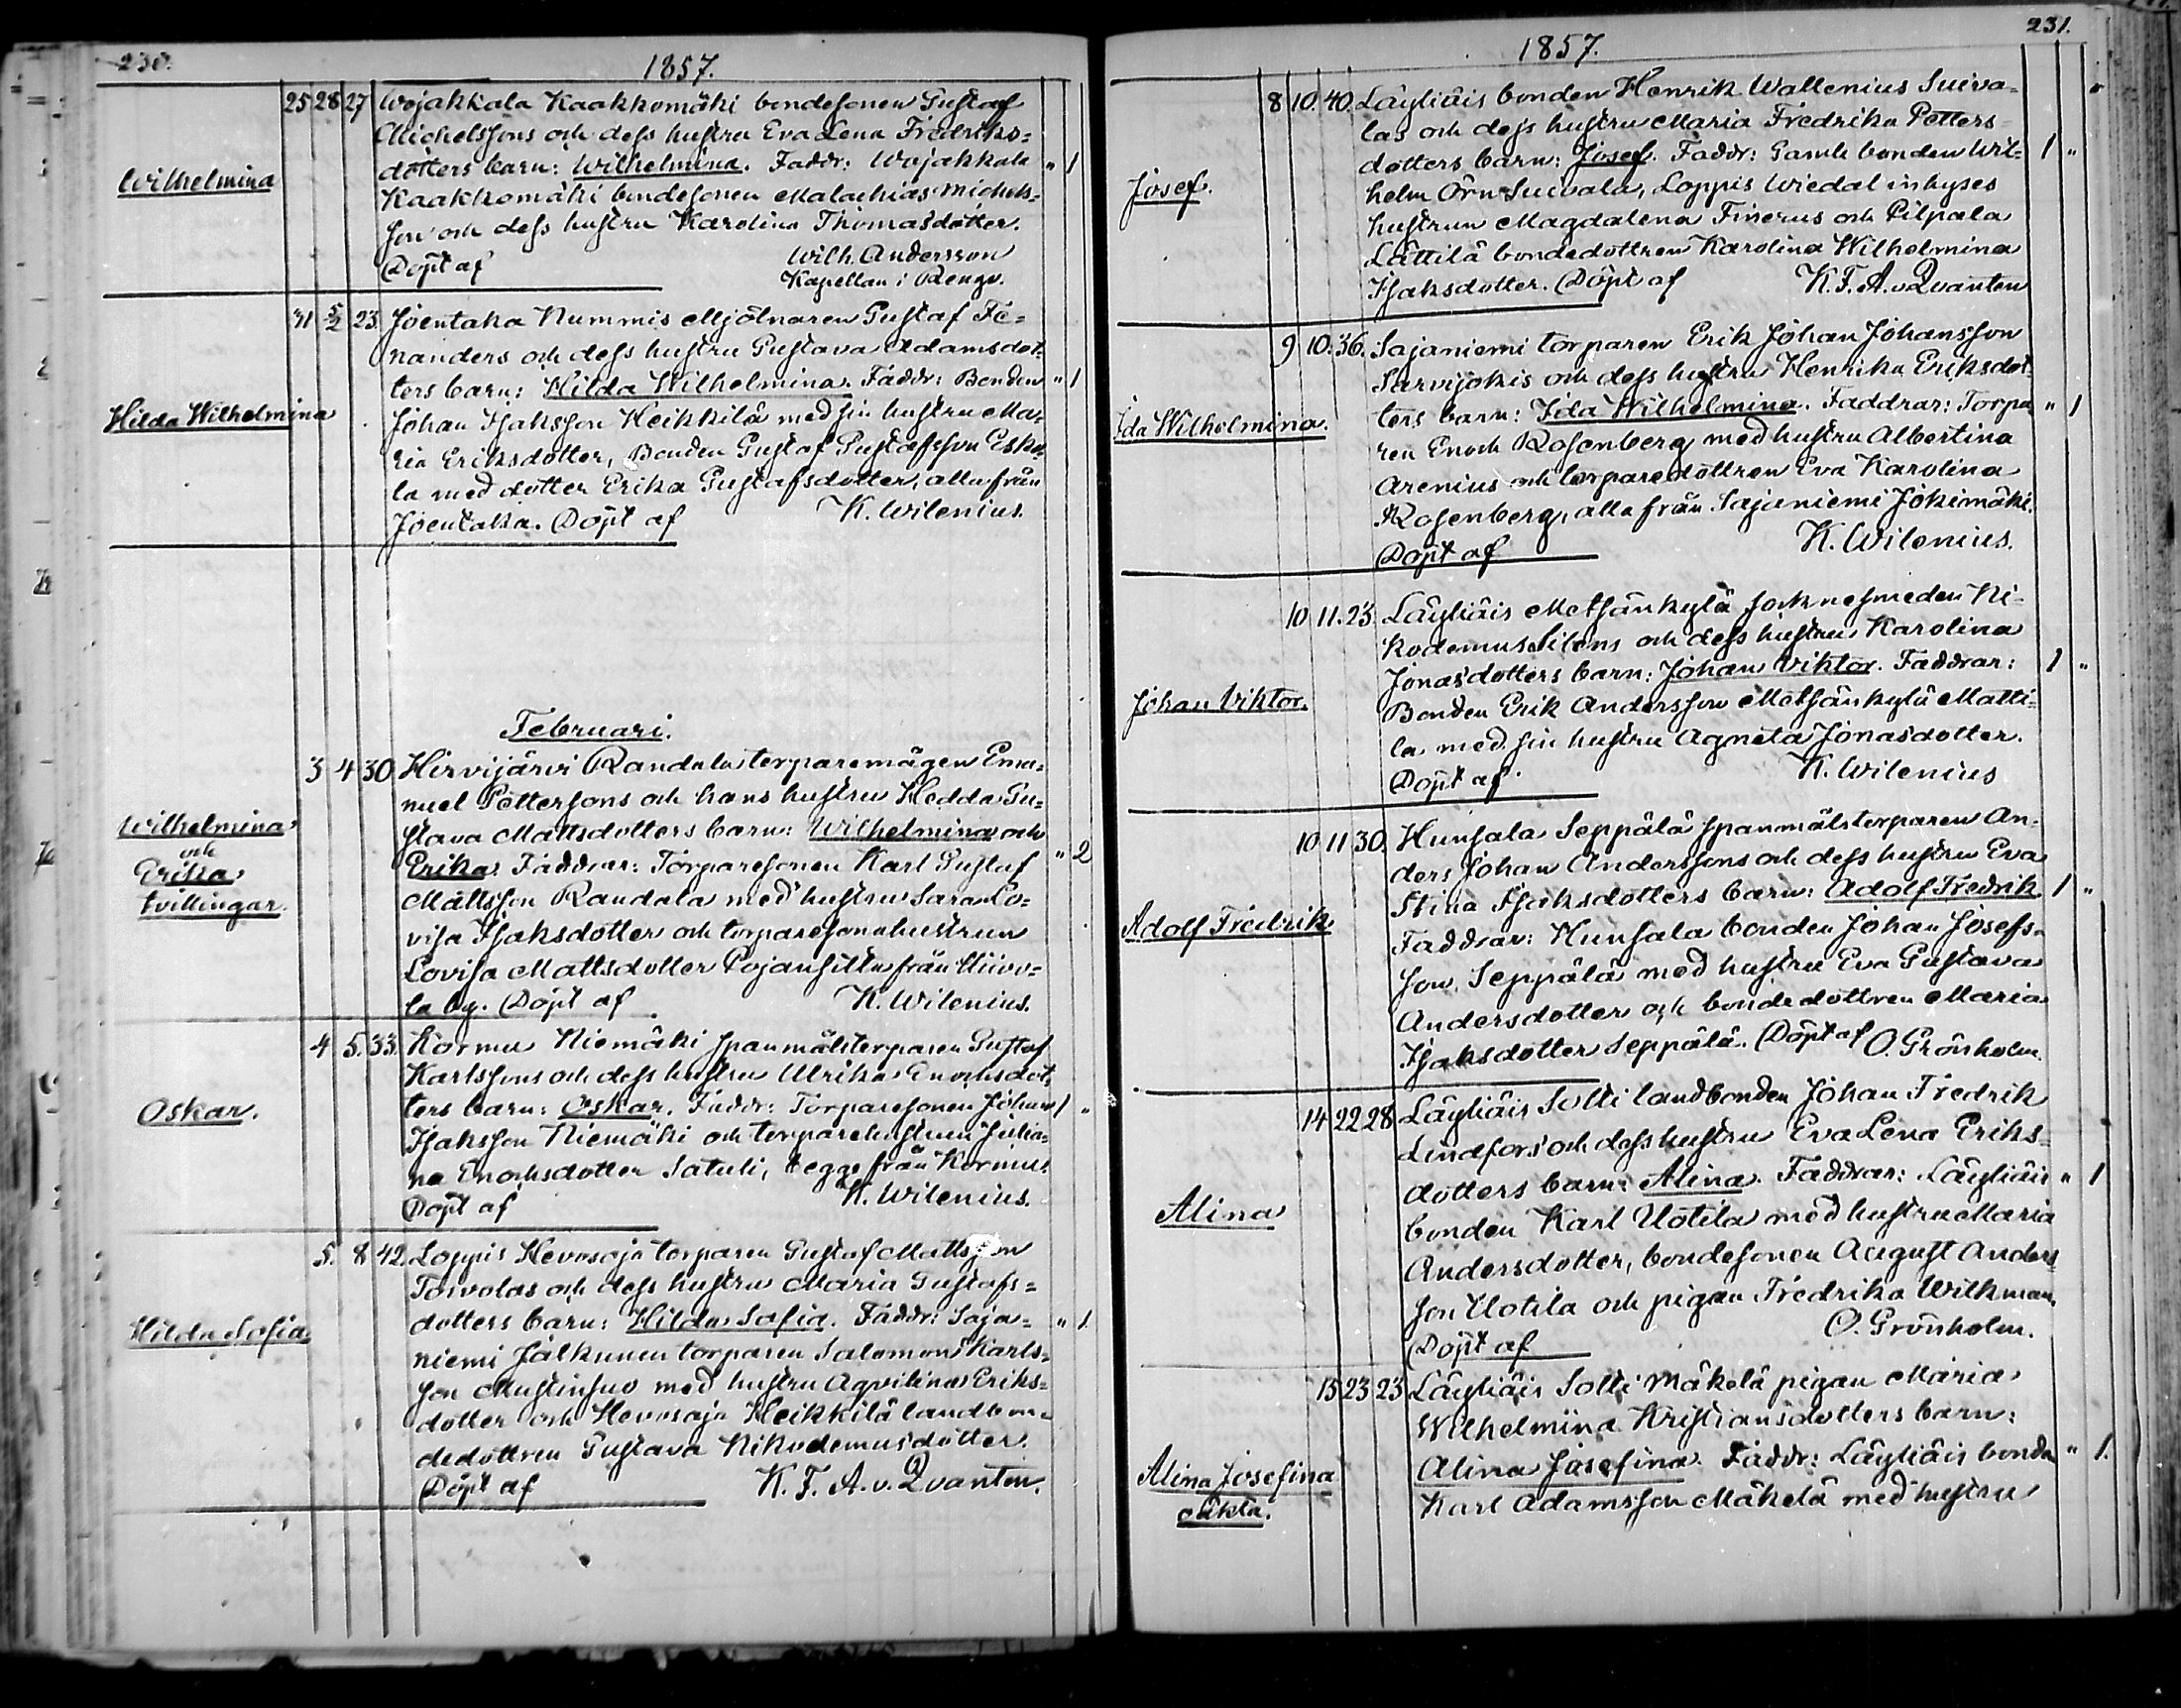 230.
1857.
Wilhelmina
25 28 27 Wojakkala Kaakkomäki bondesonen Gustaf
Michelssons och dess hustru Eva Lena Fredriks=
dotters barn: Wilhelmina. Faddr: Wojakkala " 1
Kaakkomäki bondesonen Malachias Michels=
son och dess hustru Karolina Thomasdotter.
Döpt af Wilh. Andersson
Kapellan i Rengo.
Hilda Wilhelmina
31 5/2 23. Joentaka Nummis Mjölnaren Gustaf Fe=
nanders och dess hustru Gustava Adamsdot=
ters barn: Hilda Wilhelmina. Faddr: Bonden " 1
Johan Isaksson Heikkilä med sin hustru Ma=
ria Eriksdotter, Bonden Gustaf Gustafsson Esko=
la med dotter Erika Gustafsdotter, alla från
Joentaka. Döpt af K. Wilenius.
Februari.
Wilhelmina
och
Erika
tvillingar.
3 4 30 Hirvijärvi Randala torparemågen Ema=
nuel Pettersons och hans hustru Hedda Gu=
stava Mattsdotters barn: Wilhelmina och
Erika. Faddrar: Torparesonen Karl Gustaf " 2
Mattsson Randala med hustru Sara Lo=
visa Isaksdotter och torparesonahustrun
Lovisa Mattsdotter Pojansilta från Hiivo=
la by. Döpt af K. Wilenius.
Oskar.
4 5. 33. Kormu Niemäki spanmålstorparen Gustaf
Karlssons och dess hustru Ulrika Enochsdot=
ters barn: Oskar. Faddr: Torparesonen Johan 1 "
Isaksson Niemäki och torparehustrun Julia=
na Enochsdotter Satuli, begge från Kormu.
Döpt af K. Wilenius.
Hilda Sofia.
5. 8 42. Loppis Hevosoja torparen Gustaf Mattsson
Toivolas och dess hustru Maria Gustafs=
dotters barn: Hilda Sofia. Faddr: Saja= " 1
niemi Jalkunen torparen Salomon Karls=
son Mustinsuo med hustru Agvilina Eriks=
dotter och Hevosoja Heikkilä landbon=
dedottren Gustava Nikodemusdotter.
Döpt af K. F. A. v. Qvanten.
231.
1857.
Josef.
8 10. 40. Läyliäis bonden Henrik Wallenius Suiva=
las och dess hustru Maria Fredrika Petters=
dotters barn: Josef. Faddr: Gamle bonden Wil= 1 "
helm Örn Suivala, Loppis Wiedal inhyses
hustrun Magdalena Finerus och Pilpala
Lättilä bondedottren Karolina Wilhelmina
Isaksdotter. Döpt af K. F. A. v. Qvanten
Ida Wilhelmina.
9 10. 36. Sajaniemi torparen Erik Johan Johansson
Sarvijokis och dess hustru Henrika Eriksdot=
ters barn: Ida Wilhelmina. Faddrar: Torpa= " 1
ren Enoch Rosenberg med hustru Albertina
Arenius och torparedottren Eva Karolina
Rosenberg, alla från Sajaniemi Jokimäki.
Döpt af K. Wilenius.
Johan Viktor.
10 11. 23. Läyliäis Metsänkylä socknesmeden Ni=
kodemus Silens och dess hustru Karolina
Jonasdotters barn: Johan Viktor. Faddrar: 1 "
Bonden Erik Andersson Metsänkylä Matti=
la med sin hustru Agneta Jonasdotter.
Döpt af K. Wilenius
Adolf Fredrik
10 11 30. Hunsala Seppälä spanmålstorparen An=
ders Johan Anderssons och dess hustru Eva
Stina Isaksdotters barn: Adolf Fredrik 1 "
Faddrar: Hunsala bonden Johan Josefs=
son Seppälä med hustru Eva Gustava
Andersdotter och bondedottren Maria
Isaksdotter Seppälä. Döpt af O. Grönholm.
Alina
14 22 28 Läyliäis Solti landbonden Johan Fredrik
Lindfors och dess hustru Eva Lena Eriks=
dotters barn: Alina. Faddrar: Läyliäis " 1
bonden Karl Uotila med hustru Maria
Andersdotter, bondesonen August Anders=
son Uotila och pigan Fredrika Wilkman.
Döpt af O. Grönholm.
Alina Josefina
oäkta.
15 23 23 Läyliäis Solti Mäkelä pigan Maria
Wilhelmina Kristiansdotters barn:
Alina Josefina. Faddr: Läyliäis bonden " 1.
Karl Adamsson Mäkelä med hustru